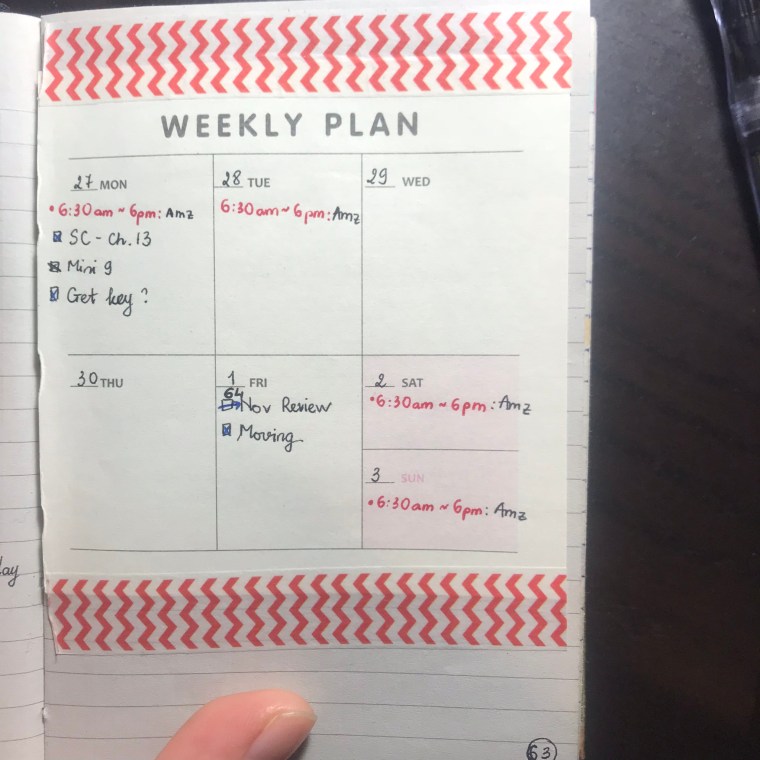 WEEKLY PLAN
27 MON
6:30am ~ 6pm: Amz
SC - Ch. 13
Mini 9
Get key?
28 TUE
6:30am ~ 6pm: Amz
29 WED
30 THU
1 FRI
64
Nov Review
Moving
2 SAT
6:30am ~ 6pm: Amz
3 SUN
6:30am ~ 6pm: Amz
63